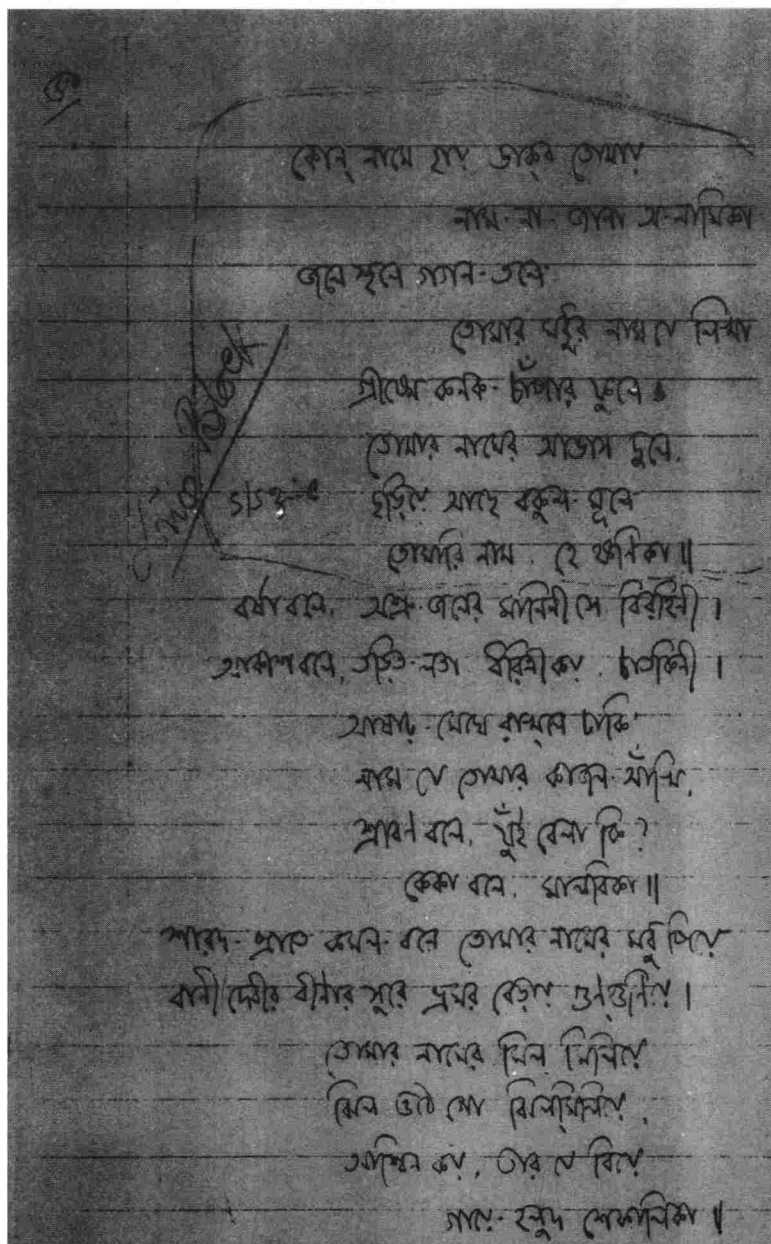 কোন্ নামে হায় ডাক্‌ব তোমায়
নাম-না-জানা অ-নামিকা
জলে স্থলে গগন-তলে
তোমার মধুর নাম যে লিখা
গ্রীষ্মে কনক-চাঁপার ফুলে
তোমার নামের আভাস দুলে,
ছড়িয়ে আছে বকুল-মূলে
তোমারি নাম, হে ক্ষণিকা॥
বর্ষা বলে, অশ্রু-জলের মানিনী সে বিরহিনী।
আকাশ বলে, তড়িত-লতা ধরিত্রী কয়, চাতকিনী।
আষাঢ়-মেঘে রাখ্‌লে ঢাকি
নাম যে তোমার কাজল-আঁখি,
শ্রাবণ বলে, যুঁই বেলা কি?
কেকা বলে, মালবিকা॥
শারদ-প্রাতে কমল-বনে তোমার নামের মধু পিয়ে
বাণী দেবীর বীণার সুরে ভ্রমর বেড়ায় গুন্‌গুনিয়ে।
তোমার নামের মিল মিলিয়ে
ঝিল ওঠে গো ঝিল্‌মিলিয়ে,
আশ্বিন কয়, তার যে বিয়ে
গায়ে-হলুদ শেফালিকা॥